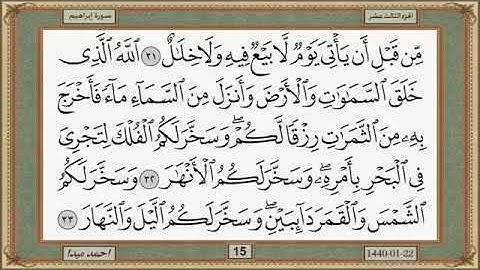 الجزء الثالث عشر
سورة إبراهيم
مِّن قَبْلِ أَن يَأْتِىَ يَوْمٌ لَّا بَيْعٌ فِيهِ وَلَا خِلَٰلٌ ٣١ ٱللَّهُ ٱلَّذِى
خَلَقَ ٱلسَّمَٰوَٰتِ وَٱلْأَرْضَ وَأَنزَلَ مِنَ ٱلسَّمَآءِ مَآءً فَأَخْرَجَ
بِهِۦ مِنَ ٱلثَّمَرَٰتِ رِزْقًا لَّكُمْ ۖ وَسَخَّرَ لَكُمُ ٱلْفُلْكَ لِتَجْرِىَ
فِى ٱلْبَحْرِ بِأَمْرِهِۦ ۖ وَسَخَّرَ لَكُمُ ٱلْأَنْهَٰرَ ٣٢ وَسَخَّرَ لَكُمُ
ٱلشَّمْسَ وَٱلْقَمَرَ دَآئِبَيْنِ ۖ وَسَخَّرَ لَكُمُ ٱلَّيْلَ وَٱلنَّهَارَ ٣٣
1440-01-22
15